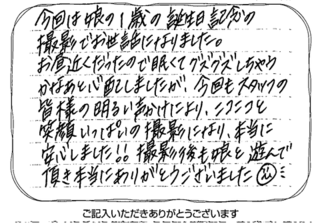 今回は娘の1歳の誕生日記念の
撮影でお世話になりました。
お昼近くだったので眠くてグズグズしちゃう
かなあと心配しましたが、今回もスタッフの
皆様の明るい声かけにより、ニコニコと
笑顔いっぱいの撮影になり、本当に
安心しました!! 撮影後も娘と遊んで
頂き本当にありがとうございました
ご記入いただきありがとうございます